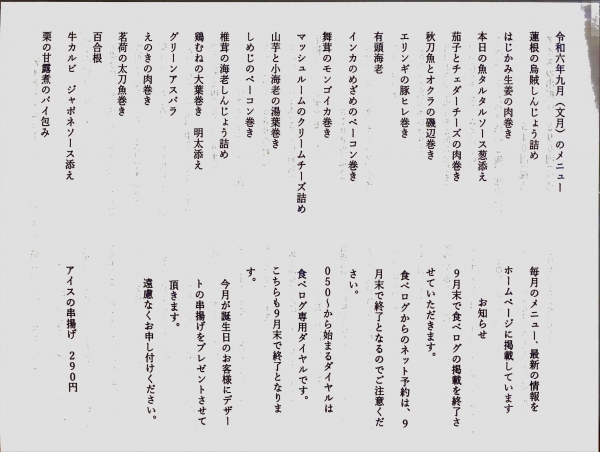 令和六年九月（文月）のメニュー
蓮根の烏賊しんじょう詰め
はじかみ生姜の肉巻き
本日の魚タルタルソース葱添え
茄子とチェダーチーズの肉巻き
秋刀魚とオクラの磯辺巻き
エリンギの豚ヒレ巻き
有頭海老
インカのめざめのベーコン巻き
舞茸のモンゴイカ巻き
マッシュルームのクリームチーズ詰め
山芋と小海老の湯葉巻き
しめじのベーコン巻き
椎茸の海老しんじょう詰め
鶏むねの大葉巻き　明太添え
グリーンアスパラ
えのきの肉巻き
茗荷の太刀魚巻き
百合根
牛カルビ　ジャポネソース添え
栗の甘露煮のパイ包み
毎月のメニュー、最新の情報を
ホームページに掲載しています
お知らせ
９月末で食べログの掲載を終了さ
せていただきます。
食べログからのネット予約は、９
月末で終了となるのでご注意くだ
さい。
０５０～から始まるダイヤルは
食べログ専用ダイヤルです。
こちらも９月末で終了となりま
す。
今月が誕生日のお客様にデザー
トの串揚げをプレゼントさせて
頂きます。
遠慮なくお申し付けください。
アイスの串揚げ　２９０円